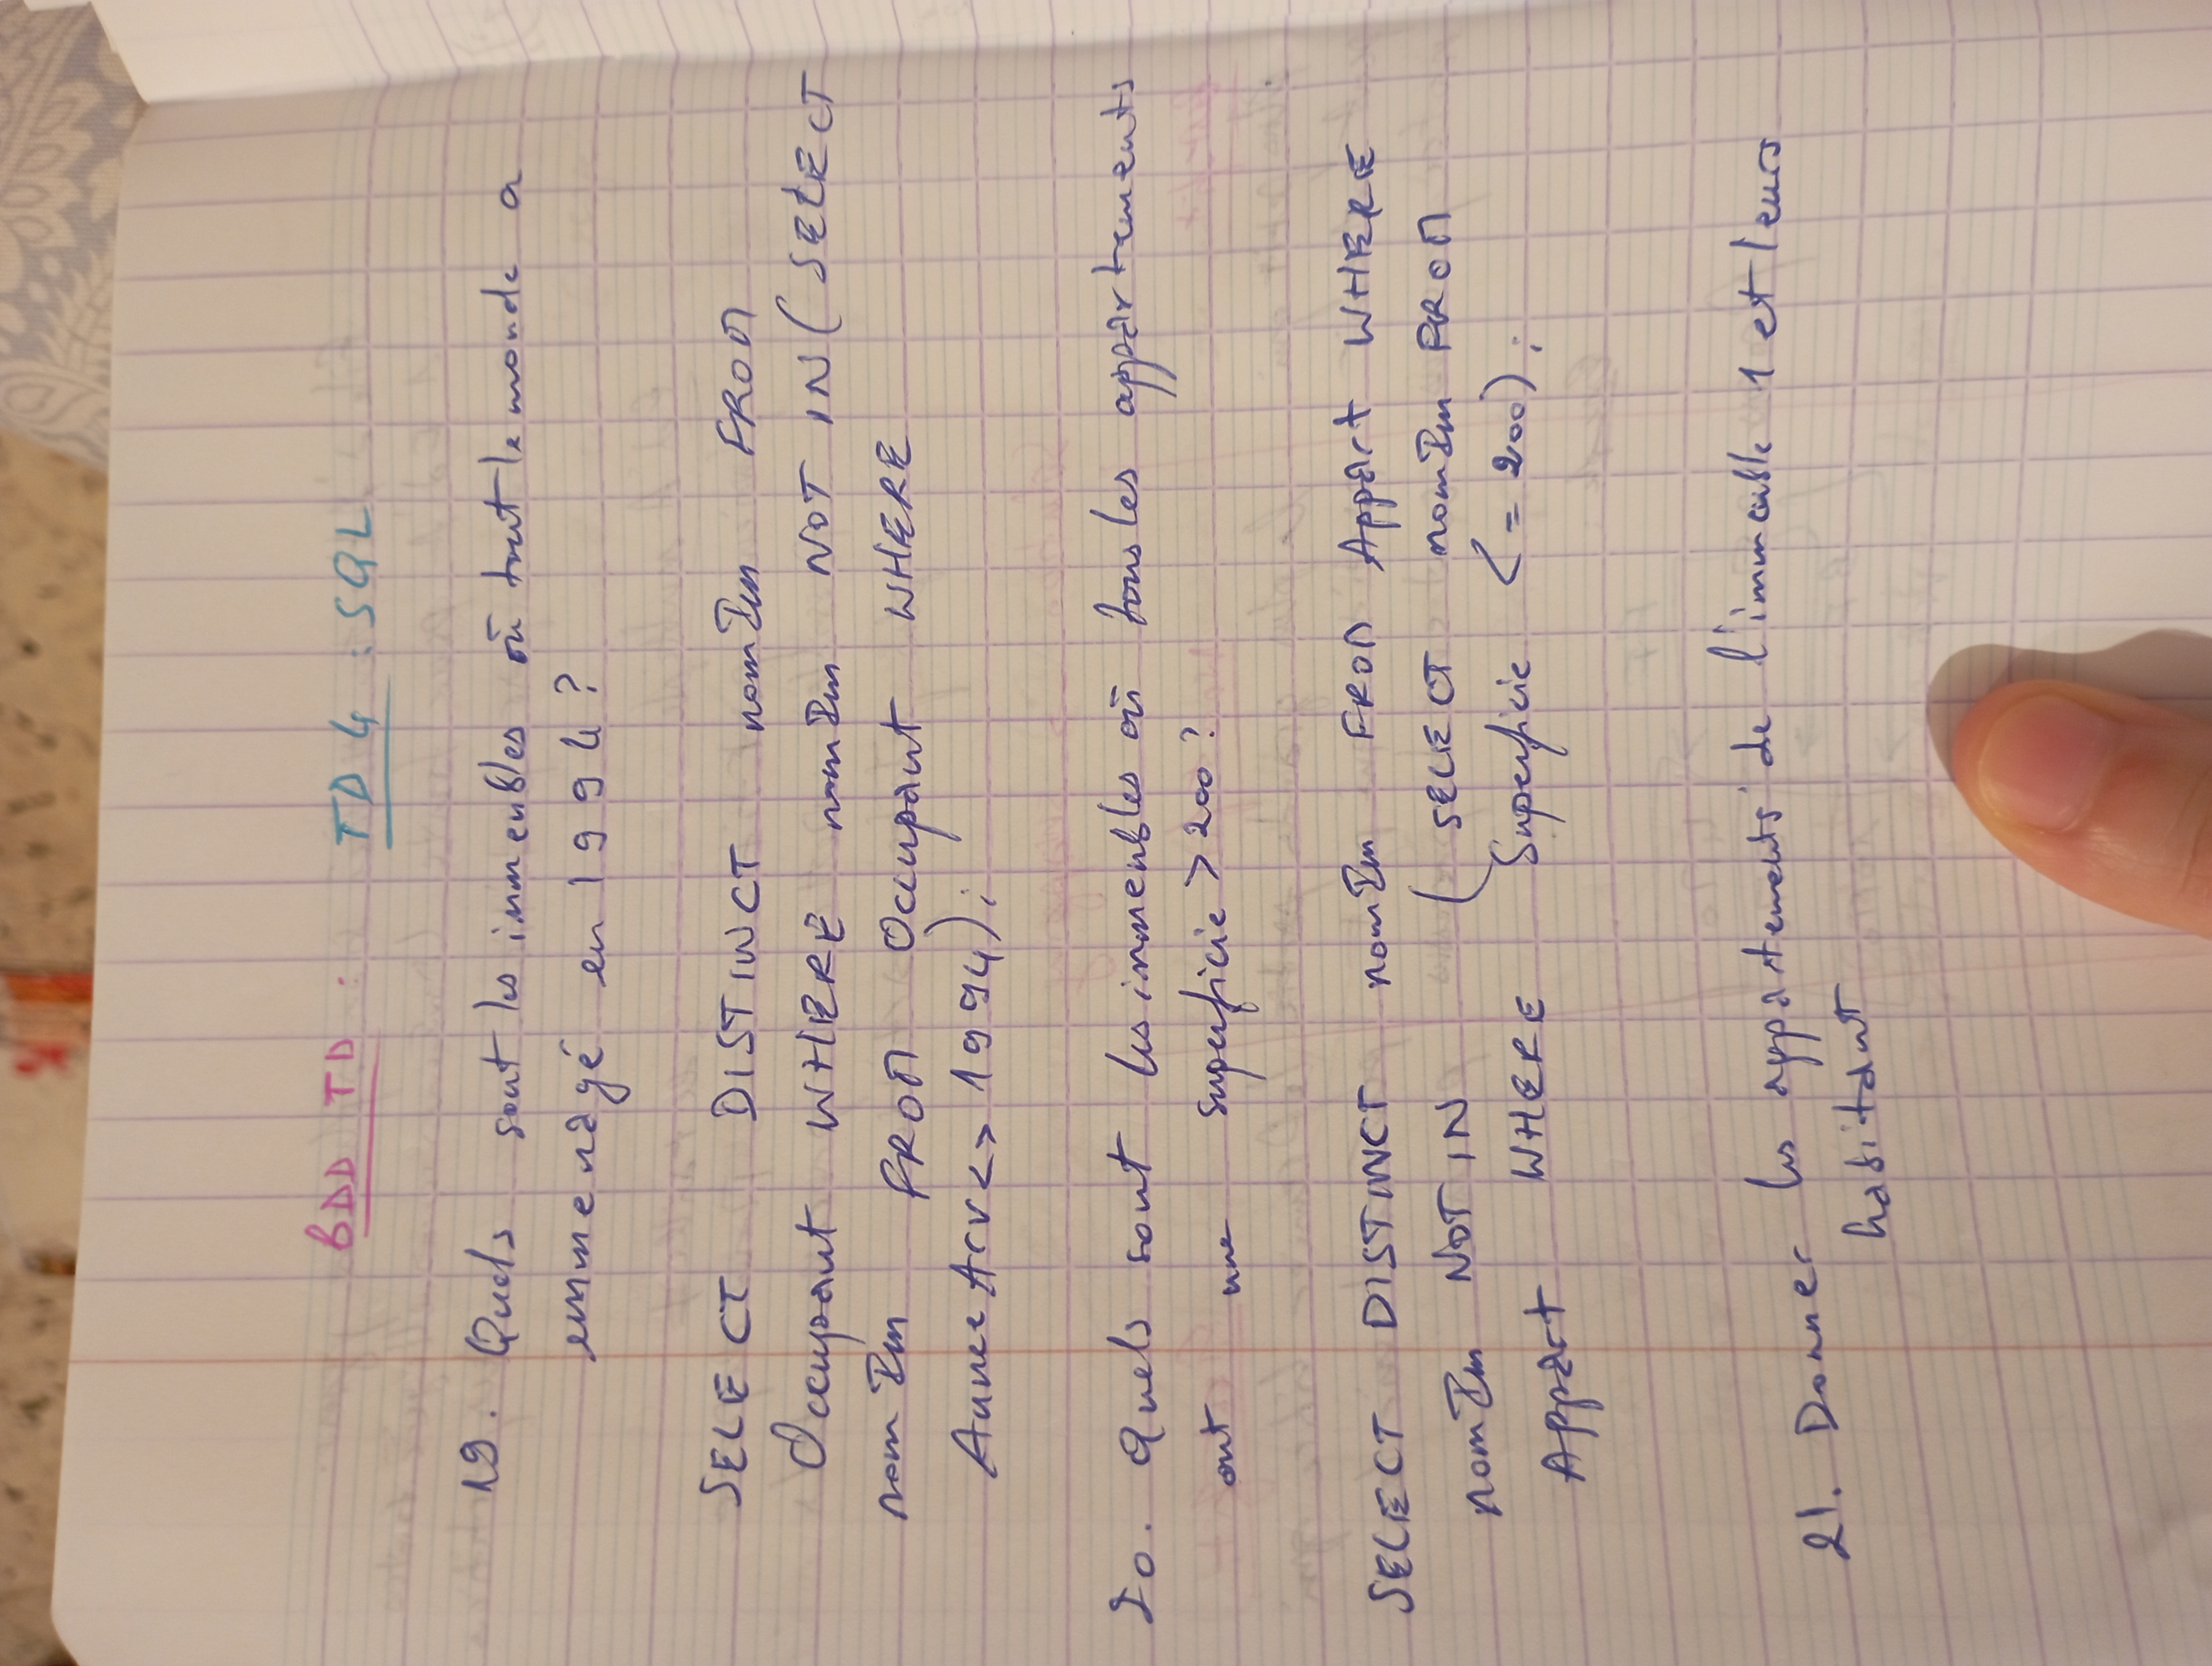 BDD TD : TD 4 : SQL
19. Quels sont les immeubles où tout le monde a
emménagé en 1994 ?
SELECT DISTINCT nomIm FROM
Occupant WHERE nomIm NOT IN ( SELECT
nomIm FROM Occupant WHERE
AnneeArr <> 1994) ;
20. Quels sont les immeubles où tous les appartements
ont une superficie > 200 ?
SELECT DISTINCT nomIm FROM Appart WHERE
nomIm NOT IN ( SELECT nomIm FROM
Appart WHERE Superficie <= 200) ;
21. Donner les appartements de l'immeuble 1 et leurs
habitant